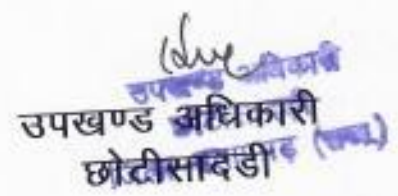 उपखण्ड अधिकारी
उपखण्ड अधिकारी
छोटीसादडी
(राज.)